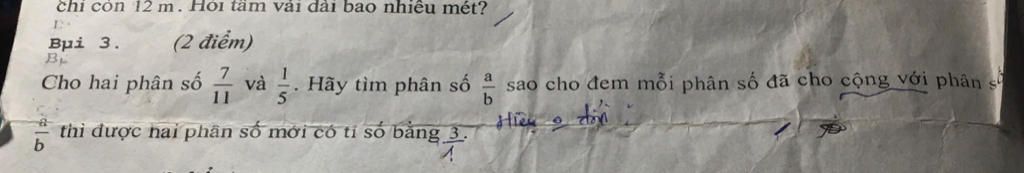 chỉ còn 12 m. Hỏi tấm vải dài bao nhiêu mét?
Bµi 3. (2 điểm)
Cho hai phân số 7/11 và 1/5. Hãy tìm phân số a/b sao cho đem mỗi phân số đã cho cộng với phân số
a/b thì được hai phân số mới có tỉ số bằng 3. Hiệu 2 đơn
1